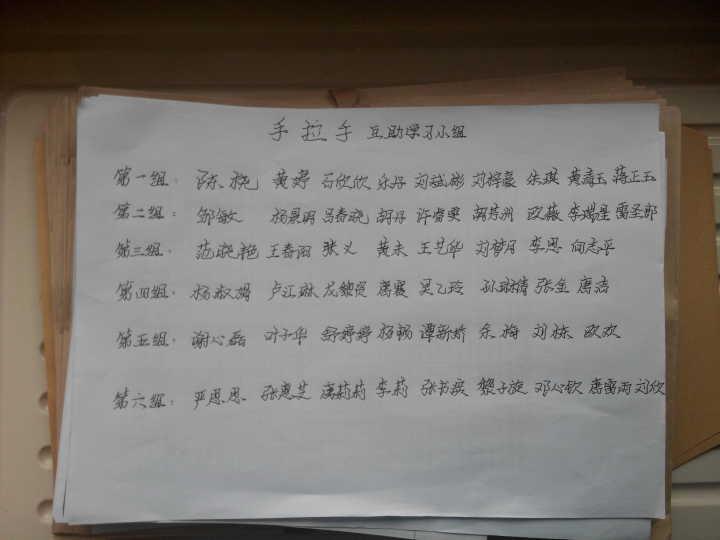 手拉手 互助学习小组
第一组: 陈晓 黄婷 石欣欣 乐丹 刘斌彬 刘梓豪 朱琪 黄嘉玉 蒋正玉
第二组: 邹敏 杨景明 吕春晓 胡丹 许睿雯 欧薇 李瑞星 雷圣郎
第三组: 范晓艳 王春阳 张义 黄未 王艺华 刘梦月 李恩 向志平
第四组: 杨淑娟 卢江琳 唐霞 吴乙玲 孙琳倩 张金 唐浩
第五组: 谢心磊 叶子华 舒婷婷 杨畅 谭新娇 余梅 刘栋 欧欢
第六组: 严思思 张惠芝 唐莉莉 李莉 黎子旋 邓心钦 唐雷雨 刘欣